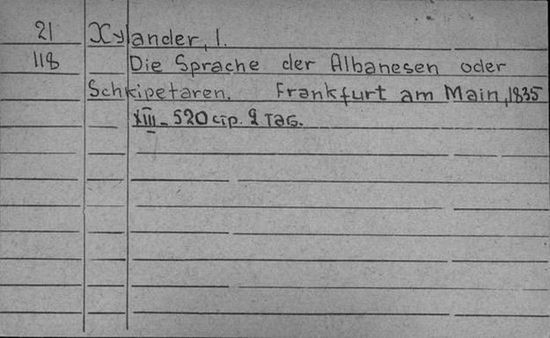 21 Xylander, I.
118 Die Sprache der Albanesen oder
Schkipetaren. Frankfurt am Main, 1835
XIII – 520 стр. 2 таб.